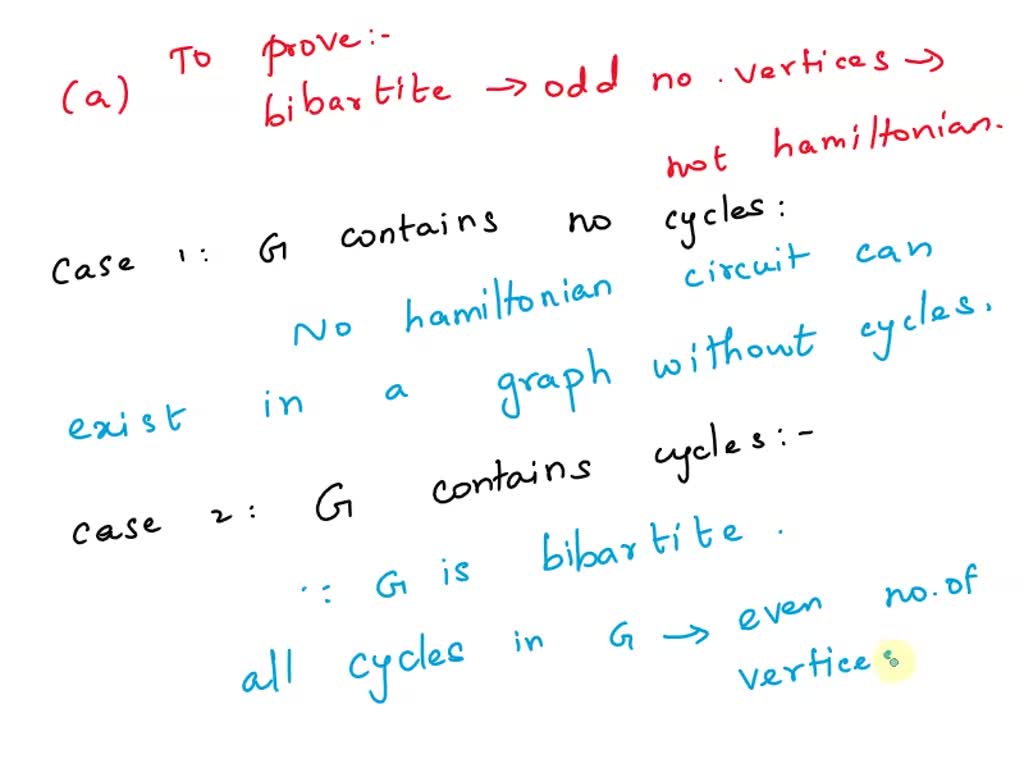 (a) To prove:-
bibartite → odd no. vertices →
not hamiltonian.
Case 1: G contains no cycles:
No hamiltonian circuit can
exist in a graph without cycles.
Case 2: G contains cycles:-
∵ G is bibartite.
all cycles in G → even no. of
vertices